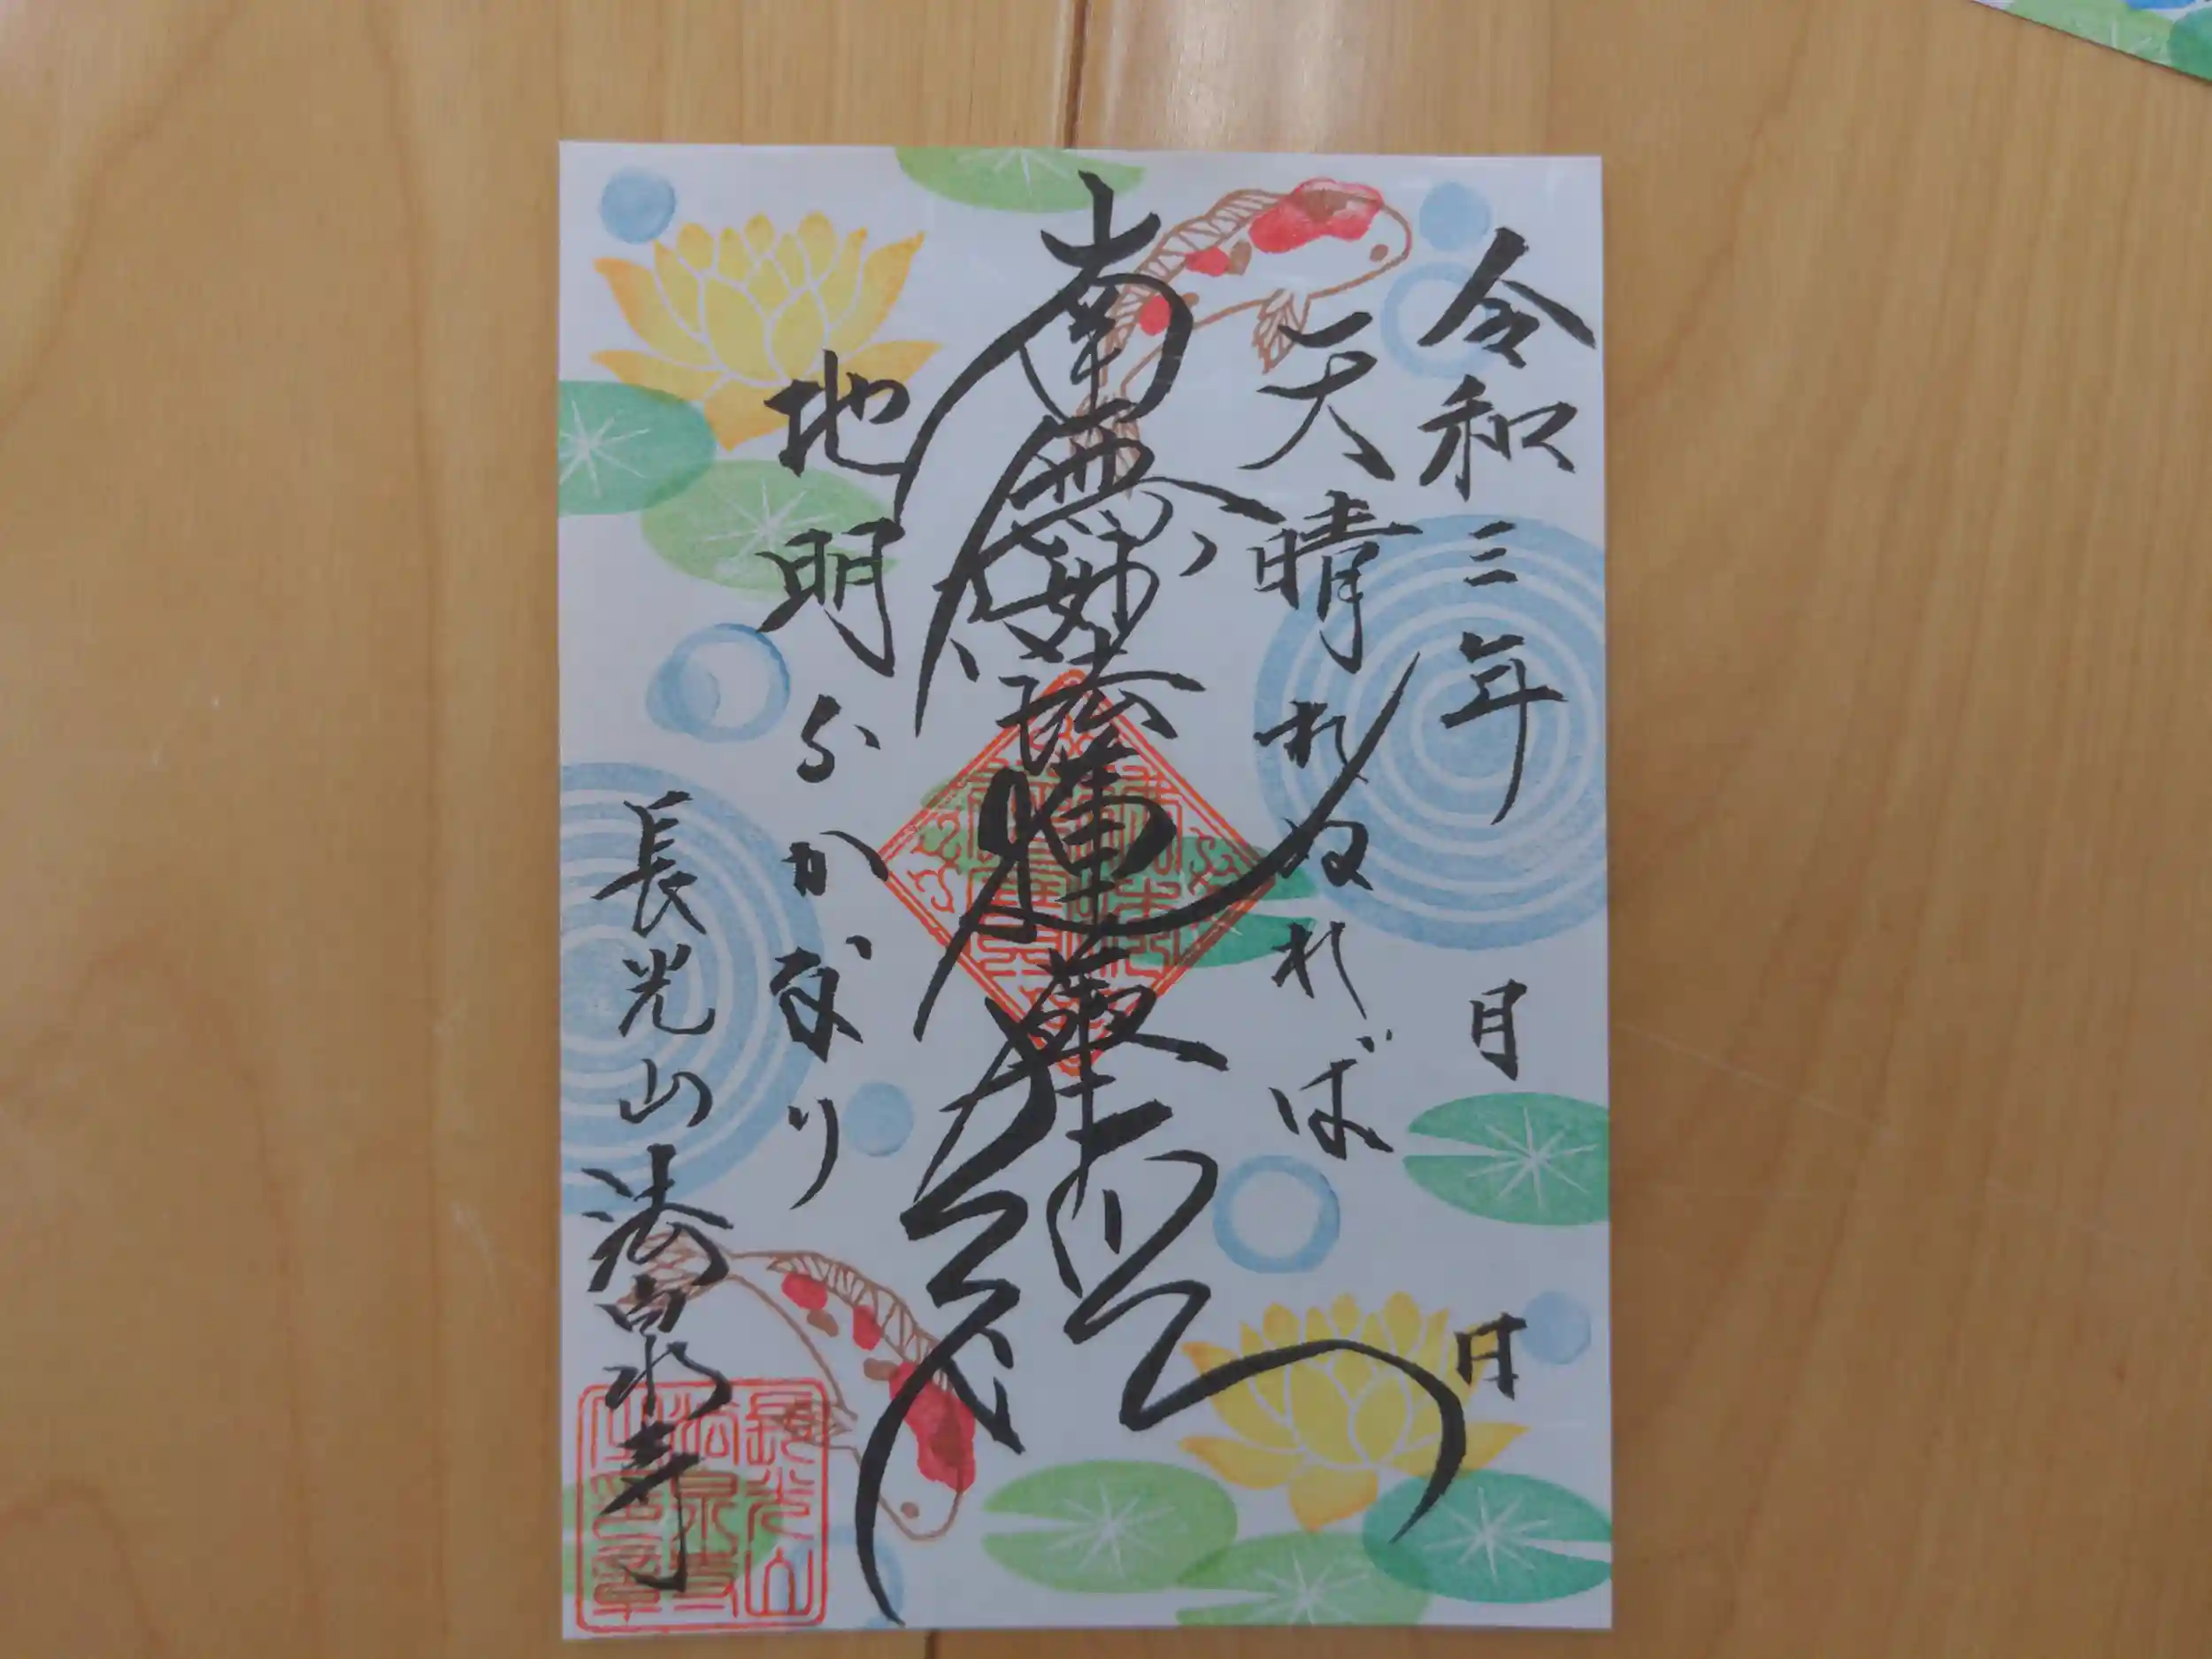 令和三年 月 日
天晴れぬれば
南無妙法蓮華経
地明らかなり
長光山法泉寺
長光山法泉寺之印章